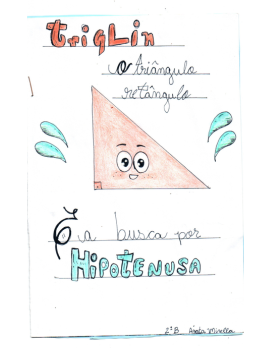 TRIGLIN
o triângulo
retângulo
E a busca por
HIPOTENUSA
2ºB